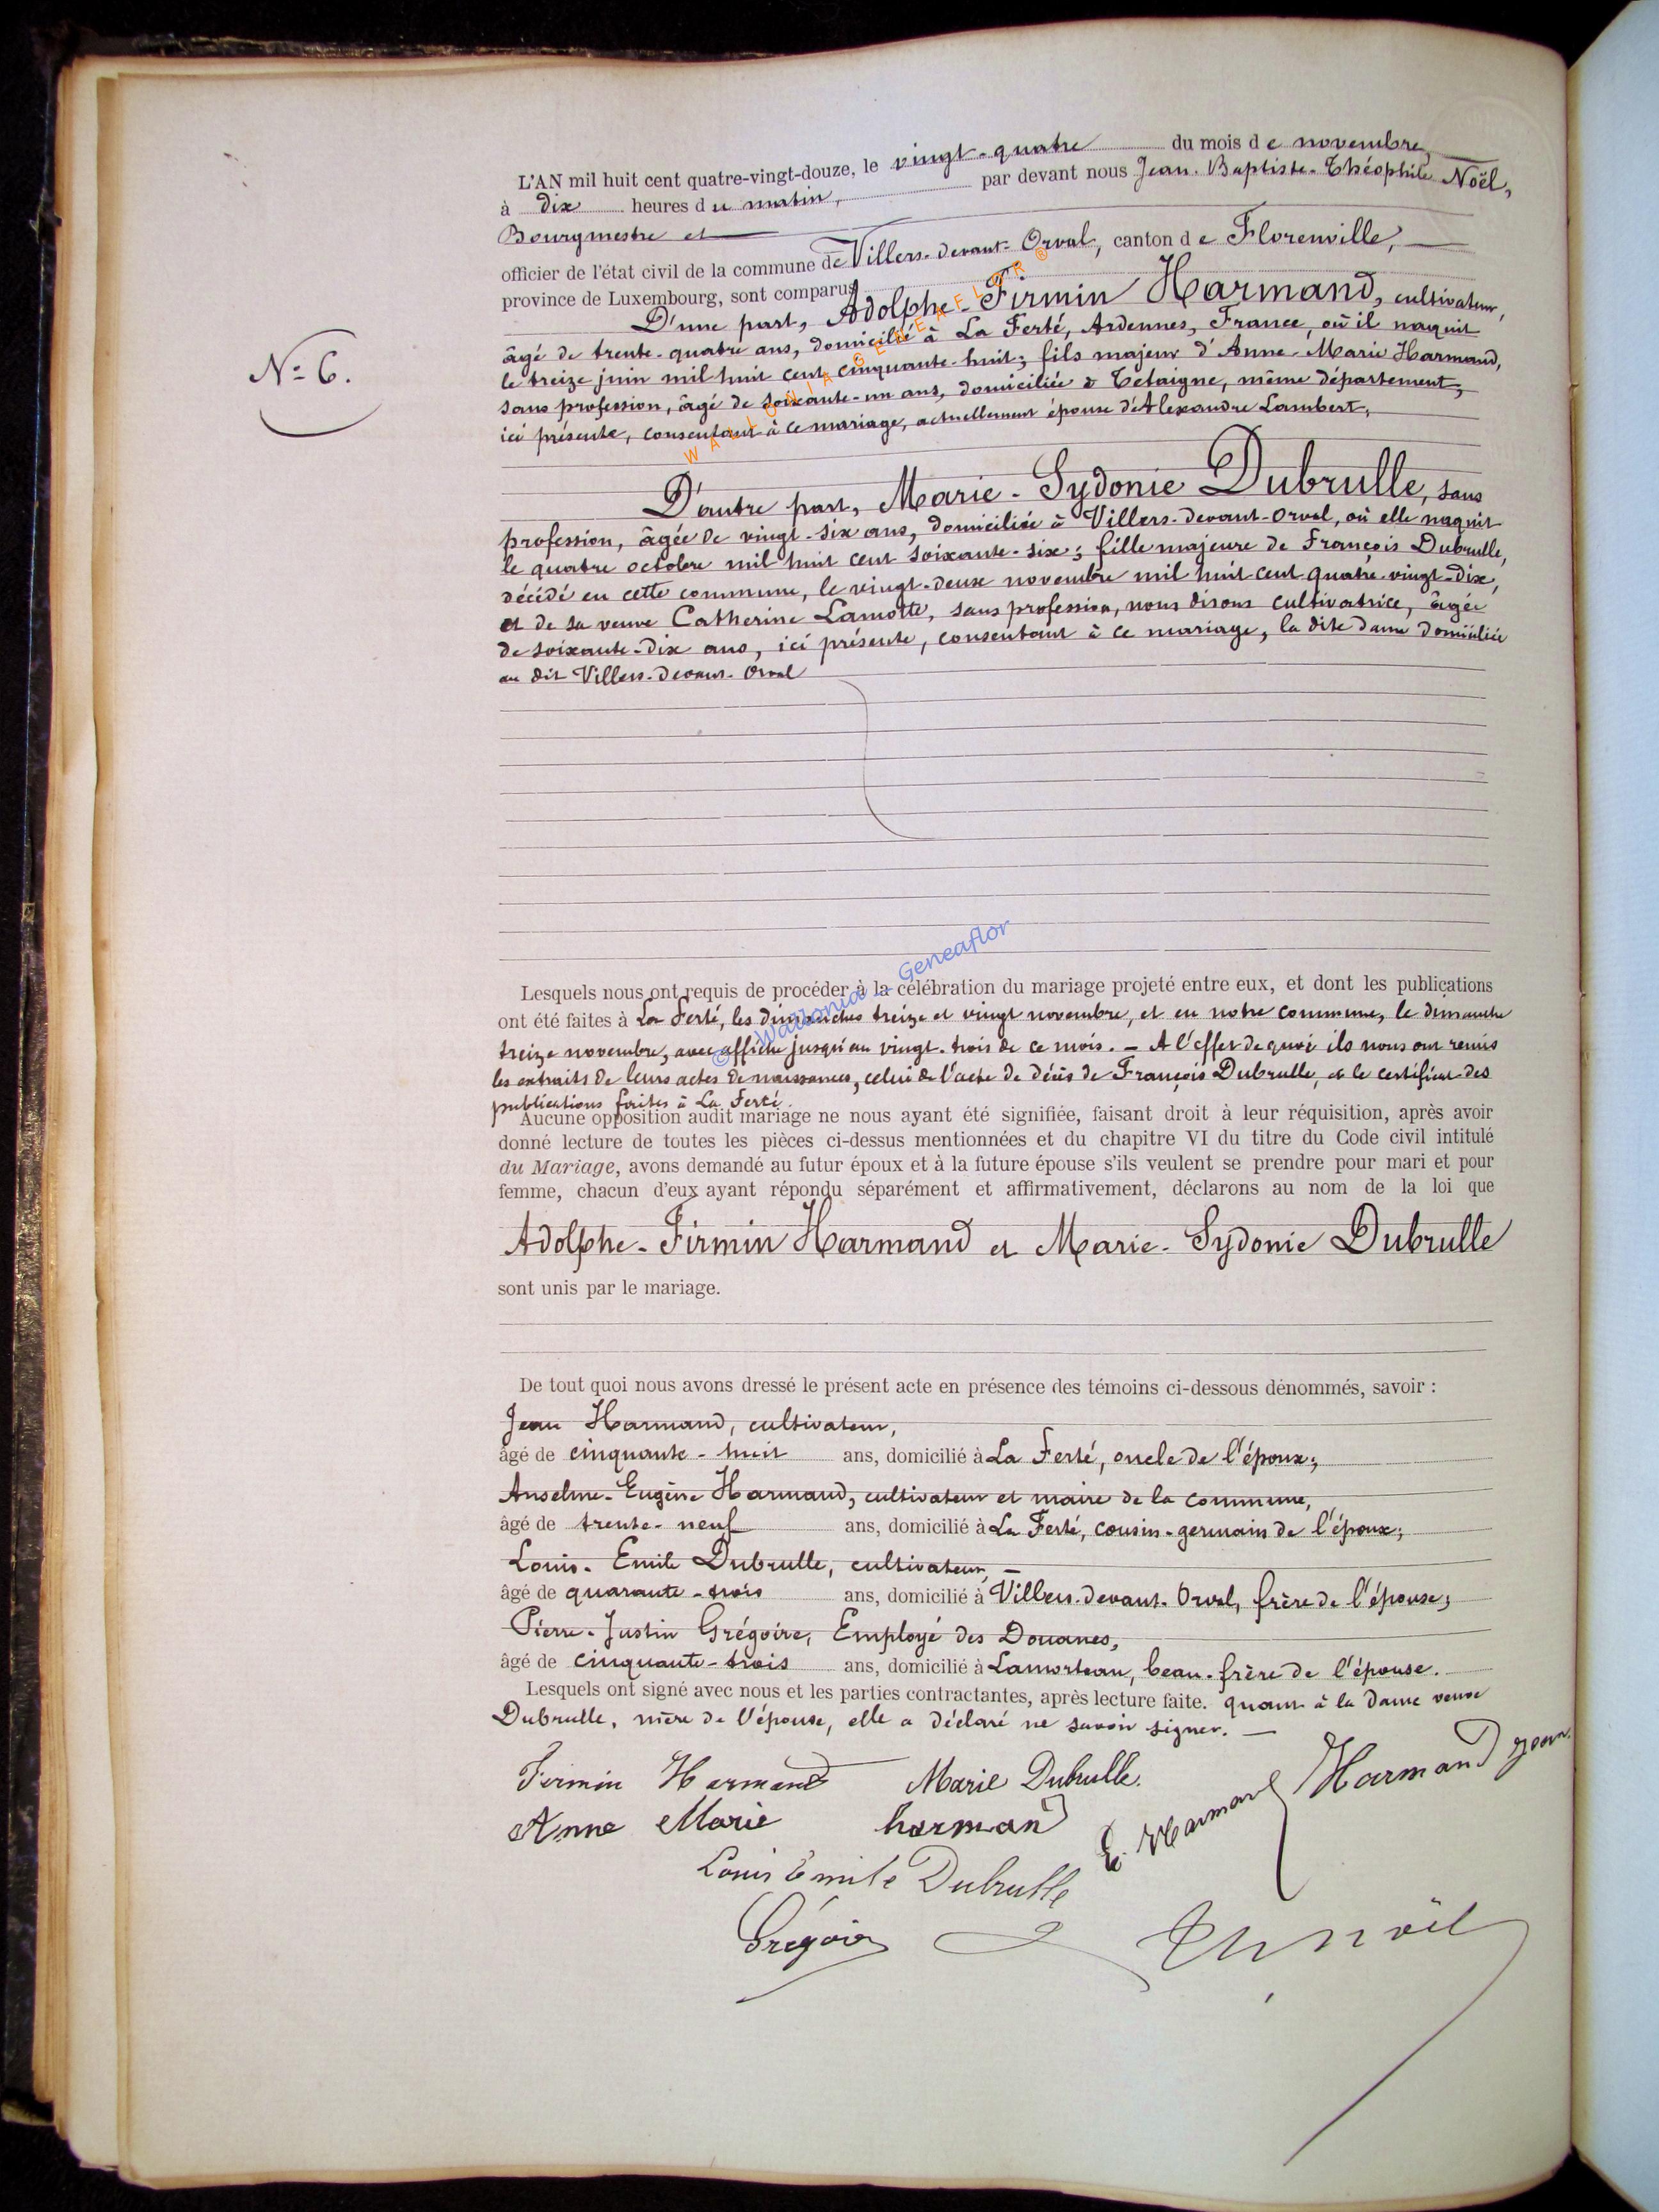 L'AN mil huit cent quatre-vingt-douze, le vingt-quatre du mois de novembre,
à dix heures du matin, par devant nous Jean-Baptiste-Théophile Noël,
Bourgmestre et
officier de l'état civil de la commune de Villers-devant-Orval, canton de Florenville,
province de Luxembourg, sont comparus
D'une part, Adolphe-Firmin Harmand, cultivateur,
âgé de trente-quatre ans, domicilié à La Ferté, Ardennes, France, où il naquit
le treize juin mil huit cent cinquante-huit; fils majeur d'Anne-Marie Harmand,
N° 6.
sans profession, âgé de soixante-un ans, domiciliée à Tétaigne, même département,
ici présente, consentant à ce mariage, actuellement épouse d'Alexandre Lambert,
WALLONIA GENEAFLOR ®
D'autre part, Marie-Sydonie Dubrulle, sans
profession, âgée de vingt-six ans, domiciliée à Villers-devant-Orval, où elle naquit
le quatre octobre mil huit cent soixante-six; fille majeure de François Dubrulle,
décédé en cette commune, le vingt-deux novembre mil huit cent quatre-vingt-dix,
et de sa veuve Catherine Lamotte, sans profession, nous disons cultivatrice, âgée
de soixante-dix ans, ici présente, consentant à ce mariage, la dite dame domiciliée
au dit Villers-devant-Orval
© Wallonia - Geneaflor
Lesquels nous ont requis de procéder à la célébration du mariage projeté entre eux, et dont les publications
ont été faites à La Ferté, les dimanches treize et vingt novembre, et en notre commune, le dimanche
treize novembre, avec affiche jusqu'au vingt-trois de ce mois. - A l'effet de quoi ils nous ont remis
les extraits de leurs actes de naissances, celui de l'acte de décès de François Dubrulle, et le certificat des
publications faites à La Ferté.
Aucune opposition audit mariage ne nous ayant été signifiée, faisant droit à leur réquisition, après avoir
donné lecture de toutes les pièces ci-dessus mentionnées et du chapitre VI du titre du Code civil intitulé
du Mariage, avons demandé au futur époux et à la future épouse s'ils veulent se prendre pour mari et pour
femme, chacun d'eux ayant répondu séparément et affirmativement, déclarons au nom de la loi que
Adolphe-Firmin Harmand et Marie-Sydonie Dubrulle
sont unis par le mariage.
De tout quoi nous avons dressé le présent acte en présence des témoins ci-dessous dénommés, savoir :
Jean Harmand, cultivateur,
âgé de cinquante-huit ans, domicilié à La Ferté, oncle de l'époux;
Anselme-Eugène Harmand, cultivateur et maire de la commune,
âgé de trente-neuf ans, domicilié à La Ferté, cousin-germain de l'époux;
Louis-Emile Dubrulle, cultivateur, -
âgé de quarante-trois ans, domicilié à Villers-devant-Orval, frère de l'épouse;
Pierre-Justin Grégoire, Employé des Douanes,
âgé de cinquante-trois ans, domicilié à Lamorteau, beau-frère de l'épouse.
Lesquels ont signé avec nous et les parties contractantes, après lecture faite. quant à la dame veuve
Dubrulle, mère de l'épouse, elle a déclaré ne savoir signer. -
Firmin Harmand Marie Dubrulle. Harmand Jean
Anne Marie harmand E. Harmand
Louis Emile Dubrulle
Grégoire Th Noël